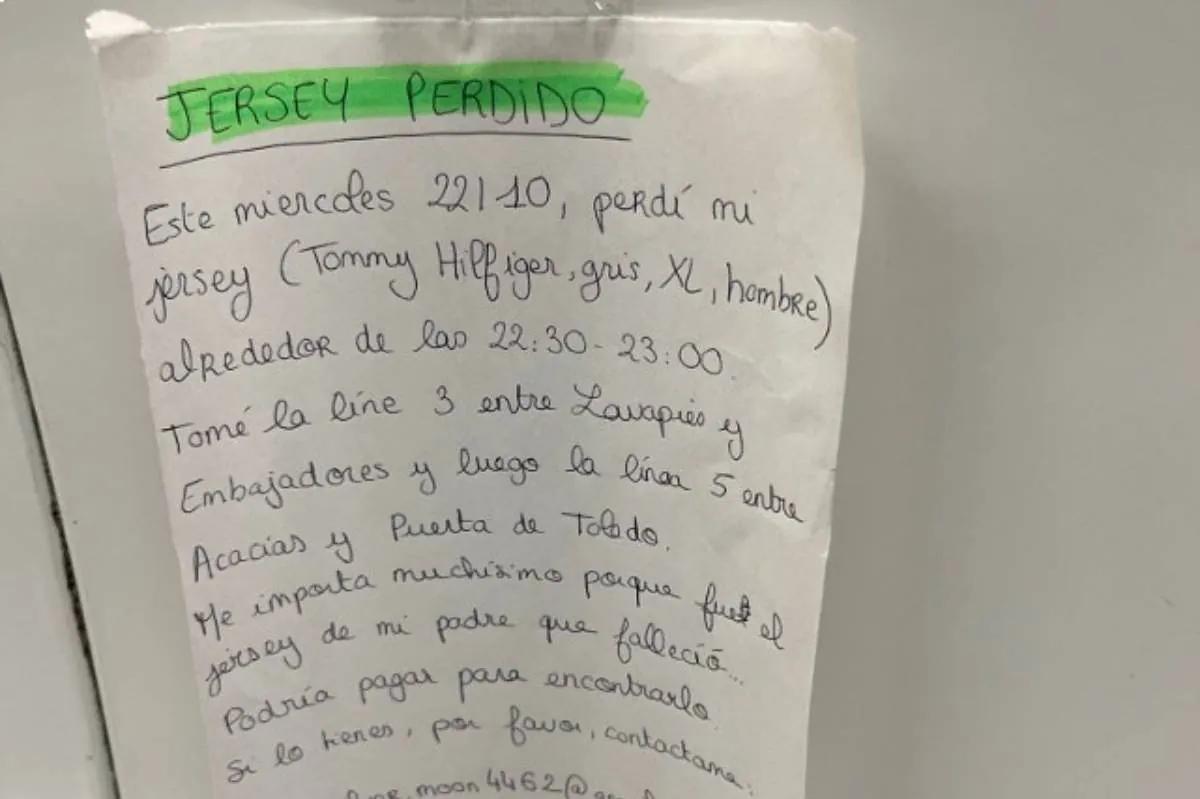 JERSEY PERDIDO
Este miercoles 22/10, perdí mi
jersey (Tommy Hilfiger, gris, XL, hombre)
alrededor de las 22:30 - 23:00.
Tomé la line 3 entre Lavapies y
Embajadores y luego la línea 5 entre
Acacias y Puerta de Toledo.
Me importa muchisimo porque fue el
jersey de mi padre que falleció...
Podría pagar para encontrarlo
Si lo tienes, por favor, contactame:
moon4462@